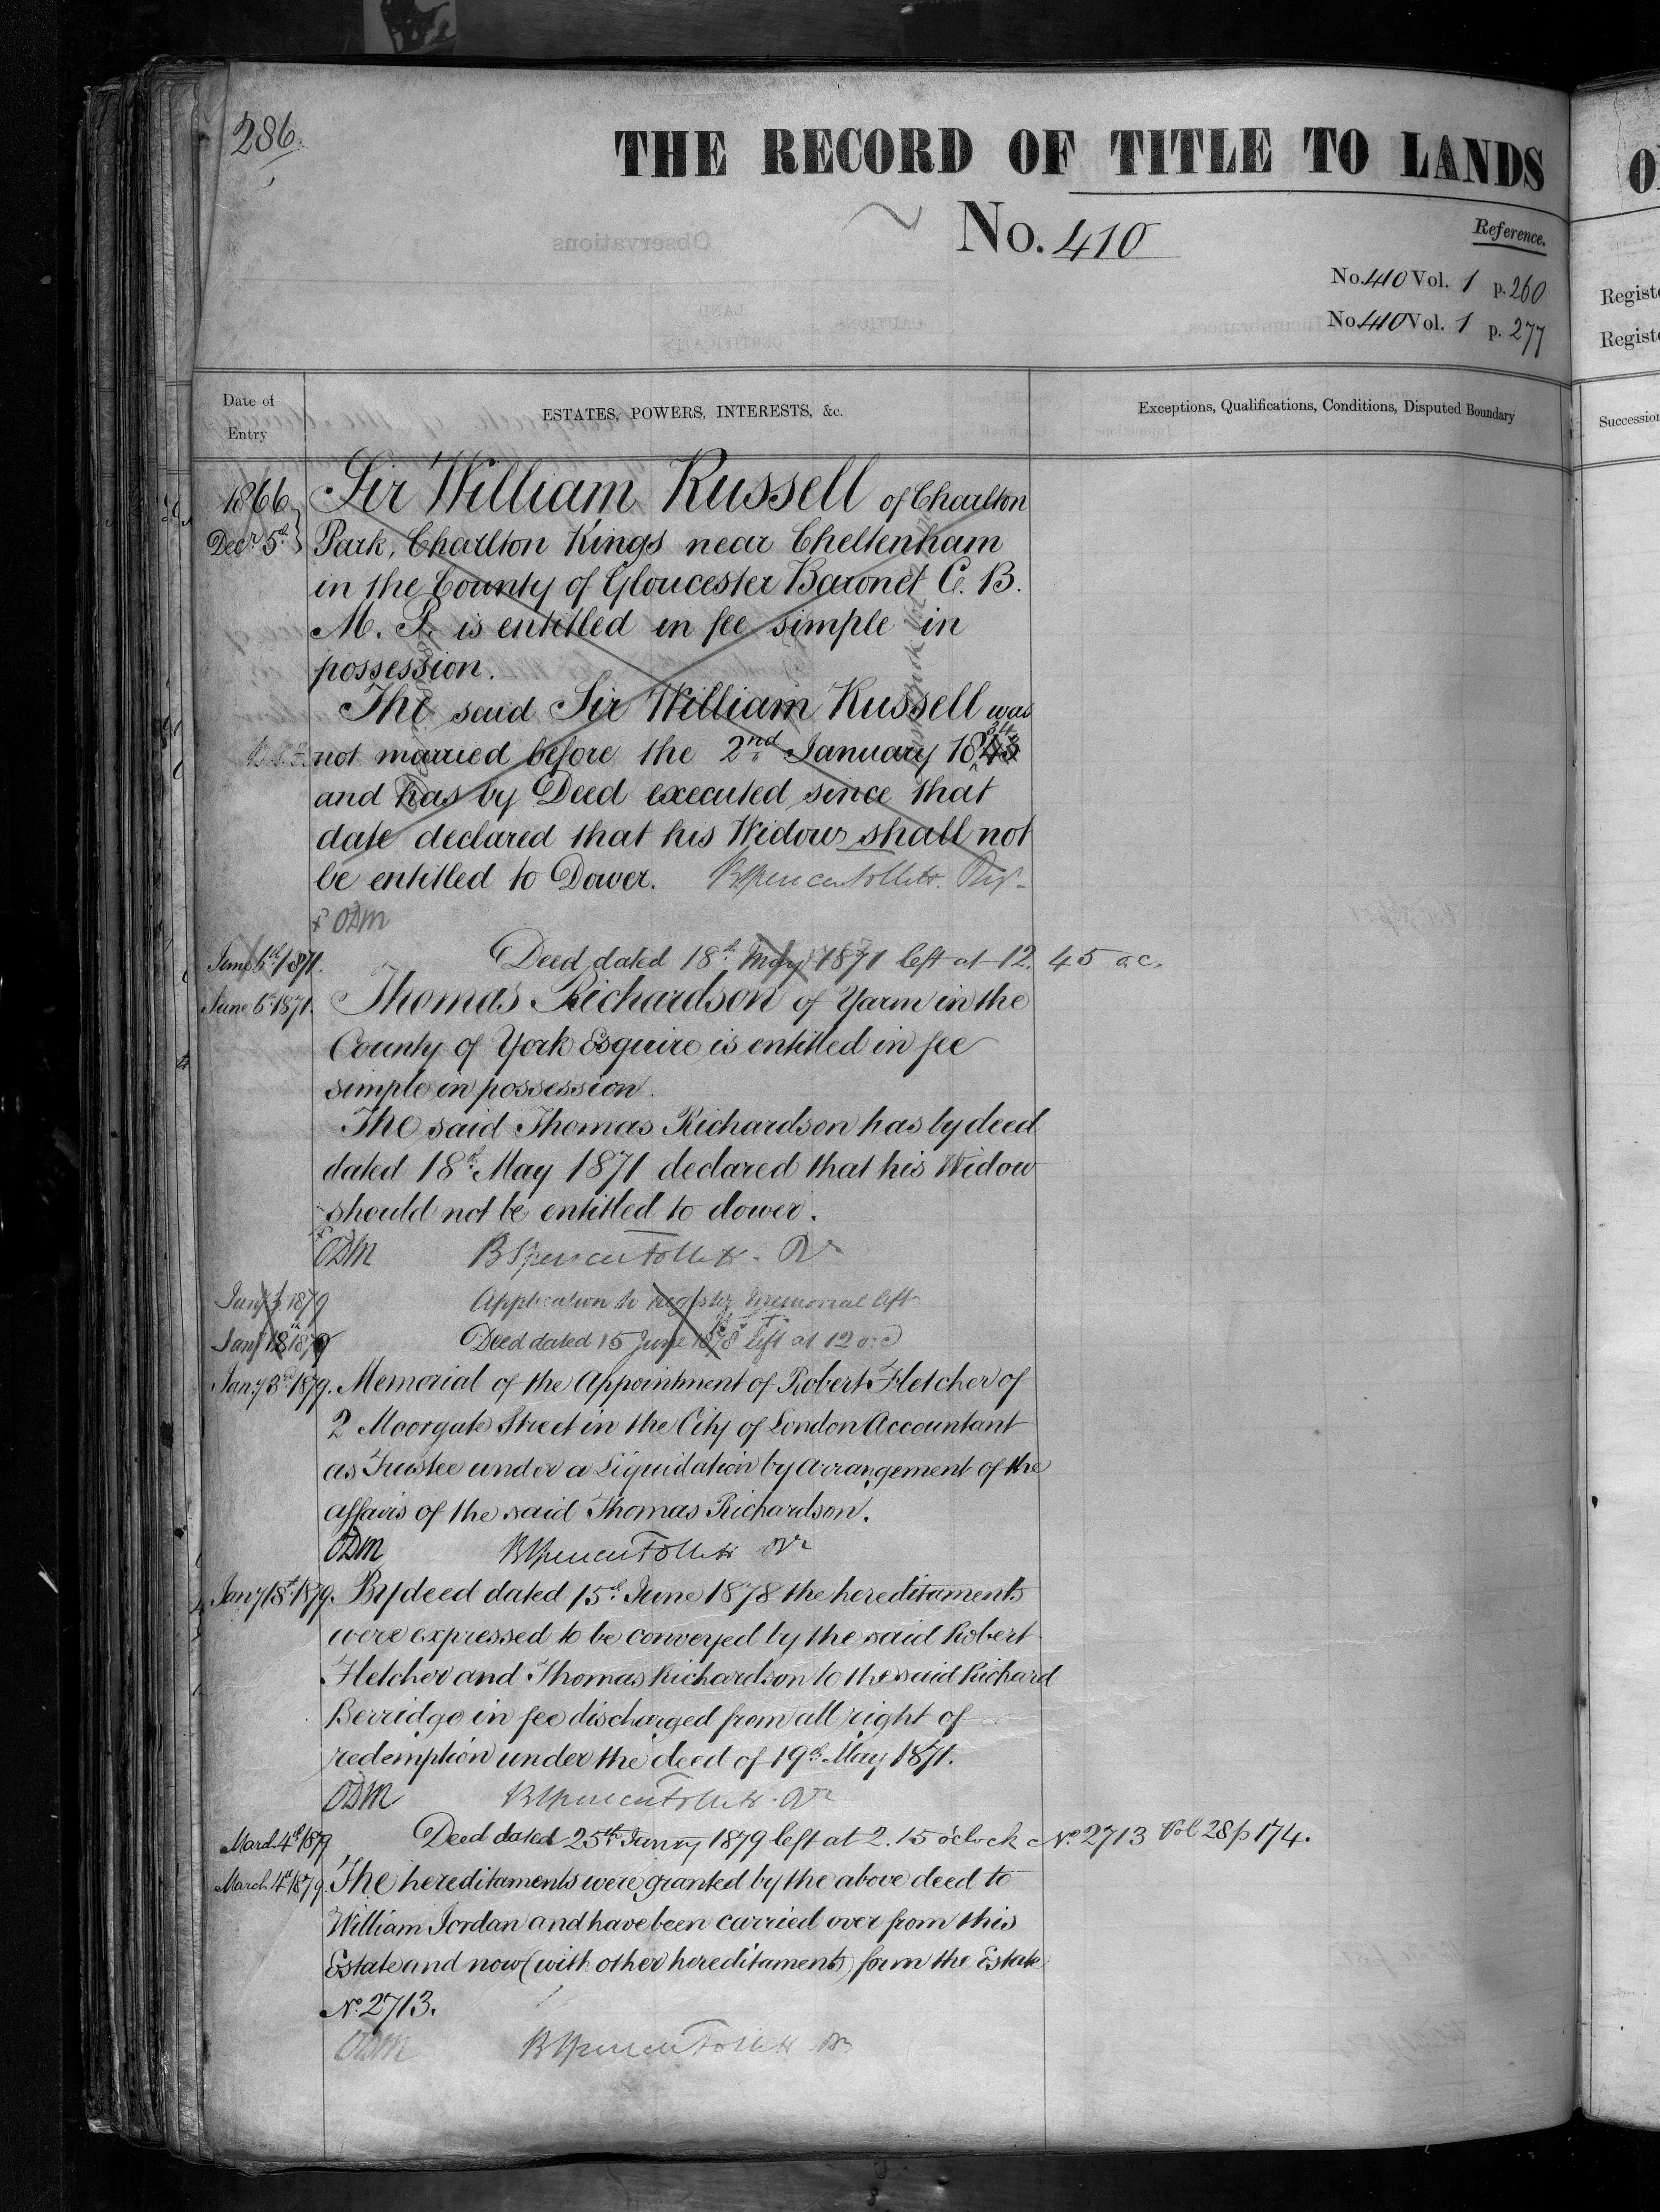 286.
THE RECORD OF TITLE TO LANDS
No. 410
Reference.
No. 410 Vol. 1 p. 260
No. 410 Vol. 1 p. 277
Date of Entry
ESTATES, POWERS, INTERESTS, &c.
Exceptions, Qualifications, Conditions, Disputed Boundary
1866 Sir William Russell of Charlton
Decr 5th Park, Charlton Kings near Cheltenham
in the County of Gloucester Baronet C. B.
M. P. is entitled in fee simple in
possession.
The said Sir William Russell was
not married before the 2nd January 1834
and has by Deed executed since that
date declared that his Widow shall not
be entitled to Dower. BSpencer Follett. Regr
ODM
June 6th 1871. Deed dated 18th May 1871 left at 12.45 o.c.
June 6th 1871. Thomas Richardson of Yarm in the
County of York Esquire is entitled in fee
simple in possession.
The said Thomas Richardson has by deed
dated 18th May 1871 declared that his Widow
should not be entitled to dower.
ODM BSpencer Follett. Rr
Jany 3 1879 Application to register memorial left
Jany 18th 1879 Deed dated 15 June 1878 left at 12 o.c
Jany 3rd 1879. Memorial of the Appointment of Robert Fletcher of
2 Moorgate Street in the City of London Accountant
as Trustee under a Liquidation by Arrangement of the
affairs of the said Thomas Richardson.
ODM BSpencer Follett Rr
Jany 18th 1879. By deed dated 15th June 1878 the hereditaments
were expressed to be conveyed by the said Robert
Fletcher and Thomas Richardson to the said Richard
Berridge in fee discharged from all right of
redemption under the deed of 19th May 1871.
ODM BSpencer Follett. Rr
March 4th 1879 Deed dated 25th Janry 1879 left at 2.15 o'clock No. 2713 Vol 28 p 174.
March 4th 1879. The hereditaments were granted by the above deed to
William Jordan and have been carried over from this
Estate and now (with other hereditaments) form the Estate
No. 2713.
ODM BSpencer Follett Rr
O
Registe
Registe
Succession